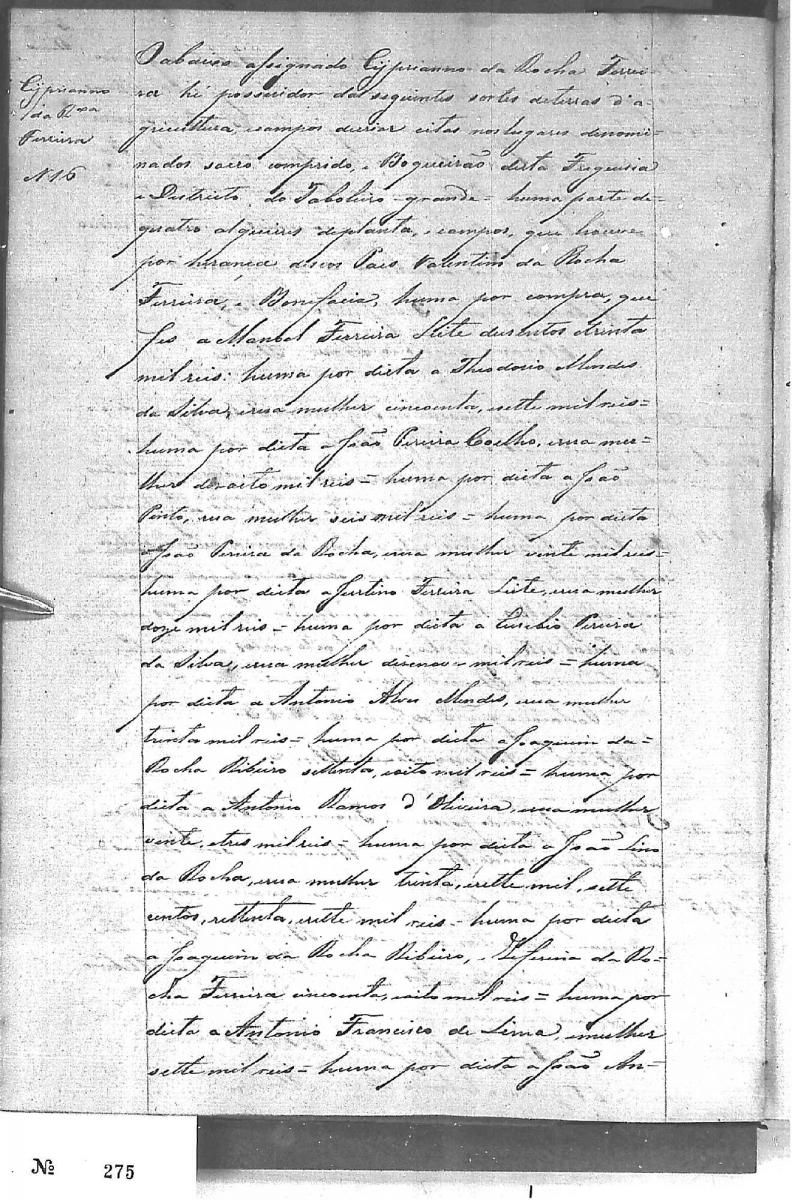 Cyprianno
da Rxa
Ferreira
N 16
O abaixo assignado Cyprianno da Rocha Ferrei-
ra hé possuidor das seguintes sortes deterras d'a-
gricultura, ecampos decriar citas nos lugares denomi-
nados saco comprido, e Boqueirão desta Freguesia
e Districto do Taboleiro-grande = huma parte de-
quatro alqueires deplanta, e campos, que houve
por herança deseos Pais Valentim da Rocha
Ferreira, e Bonifacia, huma por compra, que
fes a Manoel Ferreira Leite dusentos etrinta
mil reis: huma por dicta a Theodosio Mendes
da Silva, esua mulher cincoenta, esette mil reis =
huma por dicta a João Pereira Coelho, esua mu-
lher desoito mil reis = huma por dicta a João
Pinto, esua mulher seis mil reis = huma por dicta
a João Pereira da Rocha, esua mulher vinte mil reis =
huma por dicta a Justino Ferreira Leite, esua mulher
doze mil reis = huma por dicta a Eusebio Pereira
da Silva, esua mulher desenove mil reis = huma
por dicta a Antonio Alves Mendes, esua mulher
trinta mil reis = huma por dicta a Joaquim da =
Rocha Ribeiro settenta, eoito mil reis = huma por
dicta a Antonio Ramos d'Oliveira, esua mulher
vinte, etres mil reis = huma por dicta a João Lino
da Rocha, esua mulher trinta, esette mil, sette
centos, settenta, esette mil reis = huma por dicta
a Joaquim da Rocha Ribeiro, e Zeferina da Ro-
cha Ferreira cincoenta, eoito mil reis = huma por
dicta a Antonio Francisco de Lima, emulher
sette mil reis = huma por dicta a João An-
No 275